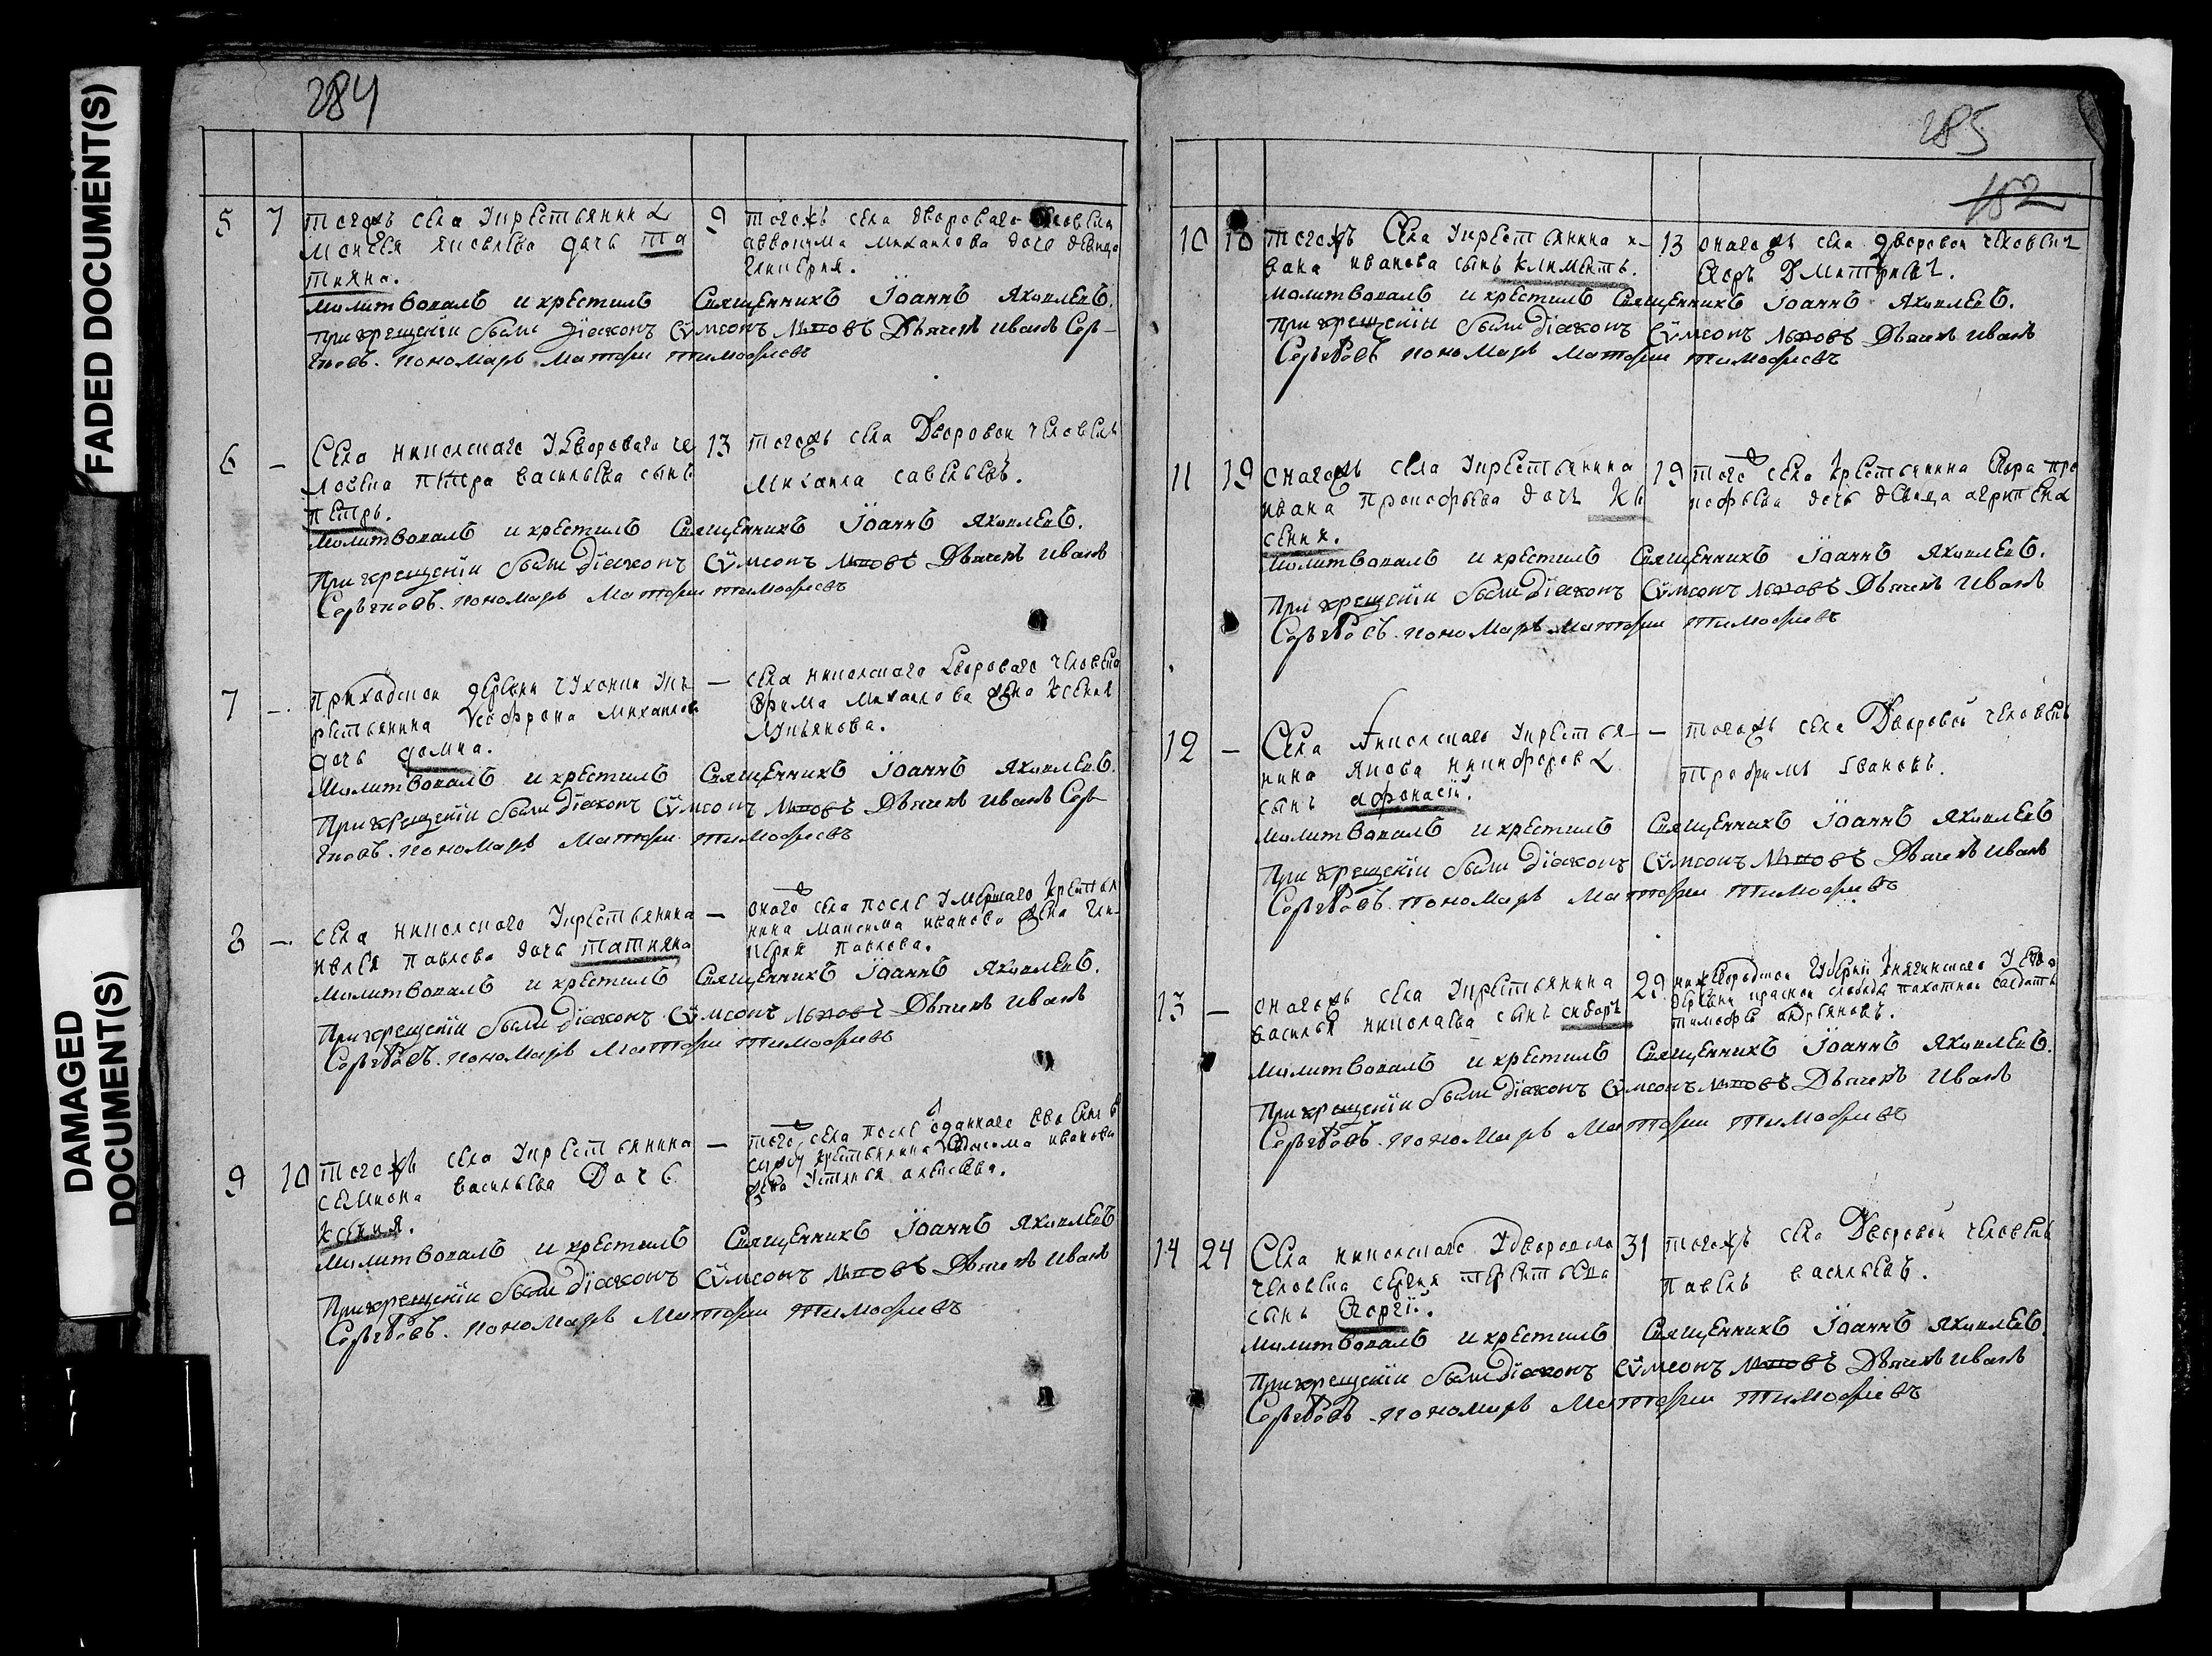 FADED DOCUMENT(S)
DAMAGED
DOCUMENT(S)
284
5 7 тогожъ села Укрестьянина
Моисея Яковлева дочь Та
тияна.
9 тогожъ села дворового человека
аввакума михаилова дочь девица
гликерия.
молитвовалъ и крестилъ Священникъ Іоаннъ Яковлевъ.
при крещеніи были діаконъ Сѵмеонъ Дьячекъ Иванъ Сер-
геевъ. пономарь Матфеи тимофеевъ
6 – Села никольского Удворового че
ловека петра васильева сынъ
петръ.
13 тогожъ села Дворовои человекъ
михаила савельевъ.
молитвовалъ и крестилъ Священникъ Іоаннъ Яковлевъ.
При крещеніи были діаконъ Сѵмеонъ Дьячекъ Иванъ
Сергеевъ. пономарь Матфеи тимофеевъ
7 – приходской деревни Ук
рестьянина софрона михаилова
дочь домна.
– села никольского дворового человека
ефима михаилова жена ксения
лукьянова.
Молитвовалъ и крестилъ Священникъ Іоаннъ Яковлевъ.
При крещеніи были діаконъ Сѵмеонъ Дьячекъ Иванъ Сер-
геевъ. пономарь Матфеи тимофеевъ
8 – села никольского Укрестьянина
павлова дочь татияна
– оного села после умершаго крестья
нина максима иванова жена гли-
керия павлова.
молитвовалъ и крестилъ Священникъ Іоаннъ Яковлевъ.
При крещеніи были діаконъ Сѵмеонъ Дьячекъ Иванъ
Сергеевъ. пономарь Матфеи тимофеевъ
9 10 тогожъ села Укрестьянина
семиона васильева Дочь
ксения.
– того села после отданного
крестьянина иванова
жена устинья алексеева.
молитвовалъ и крестилъ Священникъ Іоаннъ Яковлевъ
При крещеніи были діаконъ Сѵмеонъ Дьячекъ Иванъ
Сергеевъ. пономарь Матфеи тимофеевъ
285
152
10 10 тогожъ Села Укрестьянина и-
вана иванова сынъ климентъ.
13 оногожъ села дворовои человекъ
Егоръ Дмитриевъ.
молитвовалъ и крестилъ Священникъ Іоаннъ Яковлевъ.
При крещеніи были діаконъ Сѵмеонъ Дьячекъ Иванъ
Сергеевъ пономарь Матфеи тимофеевъ
11 19 оногожъ села Укрестьянина
ивана прокофьева дочь Кь
сения.
19 того села крестьянина Егора про
кофьева дочь девица агрипена
молитвовалъ и крестилъ Священникъ Іоаннъ Яковлевъ.
При крещеніи были діаконъ Сѵмеонъ Дьячекъ Иванъ
Сергеевъ. пономарь Матфеи тимофеевъ
12 – Села Никольского Укрестья-
нина Якова никифорова
сынъ афонасій.
– тогожъ села Дворовой человекъ
трофимъ Ивановъ.
молитвовалъ и крестилъ Священникъ Іоаннъ Яковлевъ
При крещеніи были діаконъ Сѵмеонъ Дьячекъ Иванъ
Сергеевъ. пономарь Матфеи тимофеевъ
13 – оногожъ села Укрестьянина
василья николаева сынъ сидоръ
29 нижегородской губерніи княгинского Уезда
деревни красной слободы пахотной солдатъ
тимофей андрьяновъ.
молитвовалъ и крестилъ Священникъ Іоаннъ Яковлевъ.
при крещеніи были діаконъ Сѵмеонъ Дьячекъ Иванъ
Сергеевъ. пономарь Матфеи тимофеевъ
14 24 Села никольского Удворового
человека сергия терентьева
сынъ Егоргій.
31 тогожъ села Дворовой человекъ
павелъ васильевъ.
молитвовалъ и крестилъ Священникъ Іоаннъ Яковлевъ.
При крещеніи были діаконъ Сѵмеонъ Дьячекъ Иванъ
Сергеевъ. пономарь Матфеи тимофеевъ